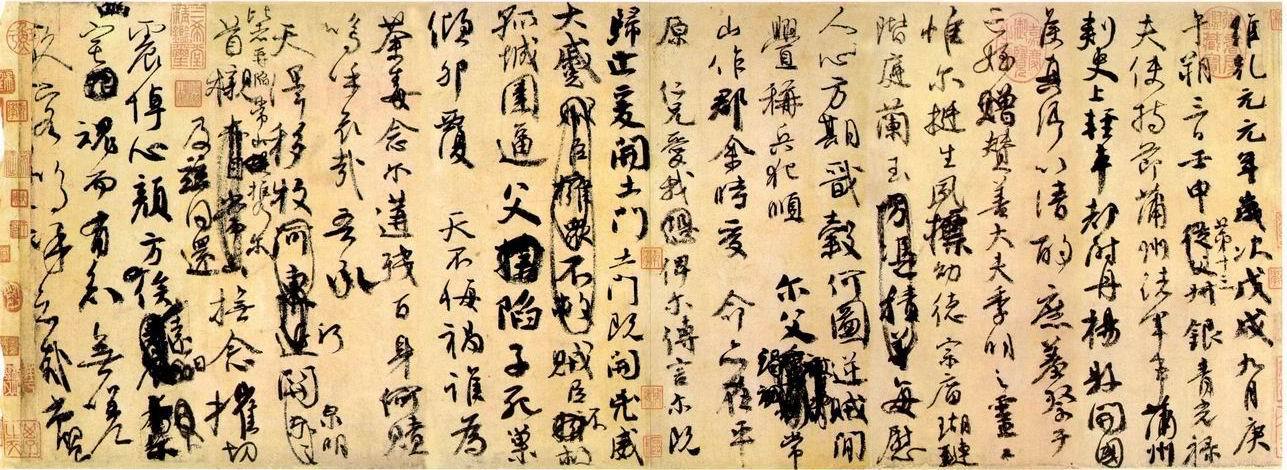 維乾元元年歲次戊戌九月庚
午朔三日壬申第十三從父銀青光祿
夫使持節蒲州諸軍事蒲州
刺史上輕車都尉丹楊縣開國
侯真卿以清酌庶羞祭于
亡姪贈贊善大夫季明之靈曰
惟爾挺生夙標幼德宗廟瑚璉
階庭蘭玉每慰
人心方期戩穀何圖逆賊間
釁稱兵犯順爾父竭誠常
山作郡余時受命亦在平
原仁兄愛我俾爾傳言爾既
歸止爰開土門土門既開兇威
大蹙賊臣不救
孤城圍逼父陷子死巢
傾卵覆天不悔禍誰為
荼毒念爾遘殘百身何贖
嗚乎哀哉吾承
天澤移牧河關泉明
比者再陷常山攜爾
首櫬及茲同還
撫念摧切
震悼心顏方俟遠日
卜爾幽宅魂而有知無嗟
久客嗚呼哀哉尚饗